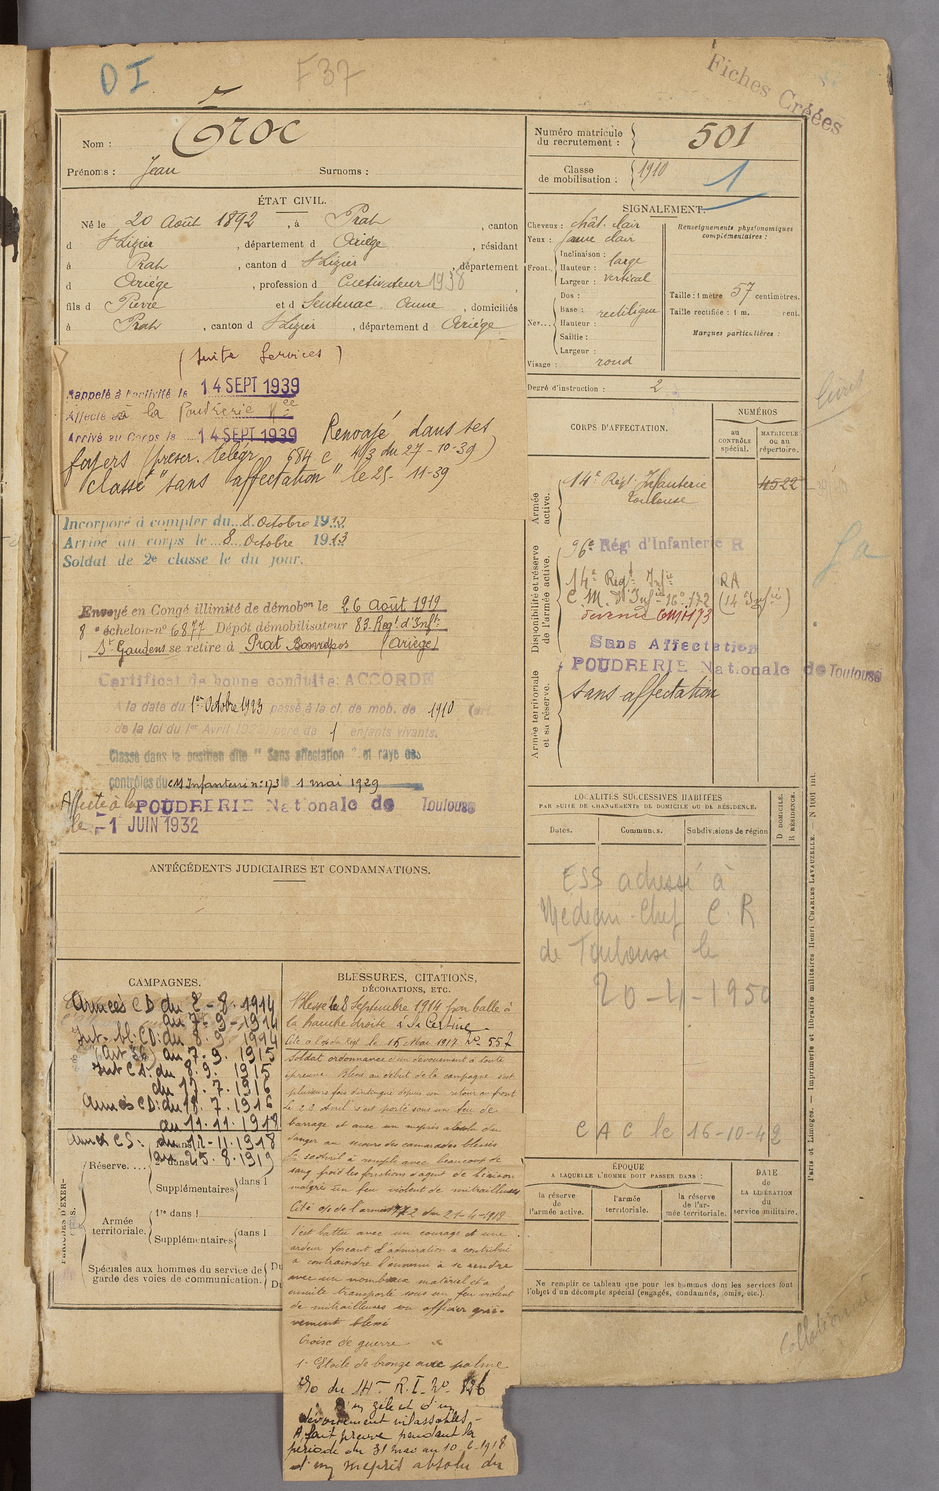 DI
F37
Fiches Créées
Nom : Croc
Prénoms : Jean Surnoms :
Numéro matricule du recrutement : 501
Classe de mobilisation : 1910
1
ÉTAT CIVIL.
Né le 20 Août 1892, à Prat, canton
d St Lizier, département d Ariège, résidant
à Prat, canton d St Lizier, département
d Ariège, profession d Cultivateur 1938
fils d Pierre et d Sentenac Anne, domiciliés
à Prat, canton d St Lizier, département d Ariège
SIGNALEMENT.
Cheveux : chât. clair
Yeux : jaune clair
Front. Inclinaison : large
Hauteur : vertical
Largeur :
Nez Dos :
Base : rectiligne
Hauteur :
Saillie :
Largeur :
Visage : rond
Renseignements physionomiques complémentaires :
Taille : 1 mètre 57 centimètres.
Taille rectifiée : 1 m. cent.
Marques particulières :
Degré d'instruction : 2
(Suite Services)
Rappelé à l'activité le 14 SEPT 1939
Affecté à la Poudrerie Nle
Arrivé au Corps le 14 SEPT 1939 Renvoyé dans ses
foyers (prescr. télégr. 684 c 1/3 du 27-10-39)
Classé "sans affectation" le 25-11-39
Incorporé à compter du 8 Octobre 1913
Arrivé au corps le 8 Octobre 1913
Soldat de 2e classe le du jour.
Envoyé en Congé illimité de démobon le 26 Août 1919
8e échelon-no 6877 Dépôt démobilisateur 83 Régt d'Infie
St Gaudens se retire à Prat Bonrepos (Ariège)
Certificat de bonne conduite: ACCORDÉ
A la date du 1er Octobre 1923 passé à la cl. de mob. de 1910
de la loi du 1er Avril 1923 1 enfants vivants.
Classé dans la position dite "Sans affectation" et rayé des
contrôles du CM Infanterie no 173 le 1 mai 1929
Affecté à la POUDRERIE Nationale de Toulouse
le 1 JUIN 1932
CORPS D'AFFECTATION.
NUMÉROS
au contrôle spécial.
matricule ou au répertoire.
Armée active.
14e Régt Infanterie Toulouse
4522
Disponibilité et réserve de l'armée active.
96e Régt d'Infanterie R
14e Régt Infie RA
C.M. d'Infie 16e 172 (14 Infie)
devenu CMI 173
Sans Affectation
POUDRERIE Nationale de Toulouse
Armée territoriale et sa réserve.
sans affectation
ANTÉCÉDENTS JUDICIAIRES ET CONDAMNATIONS.
LOCALITÉS SUCCESSIVES HABITÉES
PAR SUITE DE CHANGEMENTS DE DOMICILE OU DE RÉSIDENCE.
Dates. Communes. Subdivisions de région
D DOMICILE. R RÉSIDENCE.
ESS adressé à
Médecin-Chef C R
de Toulouse le
20-4-1950
CAC le 16-10-42
CAMPAGNES.
Armées CD du 2-8-1914
au 7-9-1914
Int. bl. CD: du 8.9.1914
au 7.9.1915
Int CS. du 8.9.1915
au 17.7.1916
Armées CD: du 18.7.1916
au 11.11.1918
Armées CS: du 12-11-1918
au 25.8.1919
Réserve.... dans l
2e dans
Supplémentaires dans l
Armée territoriale. 1re dans l
Supplémentaires dans l
Spéciales aux hommes du service de garde des voies de communication.
BLESSURES, CITATIONS, DÉCORATIONS, ETC.
Blessé le 8 Septembre 1914 par balle à
la hanche droite à La Certine
Cité à l'ordre Rgt. le 16 Mai 1917 No 557
Soldat ordonnance d'un dévouement à toute
épreuve. Blessé au début de la campagne s'est
plusieurs fois distingué depuis son retour au front
Le 22 Avril s'est porté sous un feu de
barrage et avec un mépris absolu du
danger au secours des camarades blessés
Le soir il a rempli avec beaucoup de
sang froid les fonctions d'agent de liaison
malgré un feu violent de mitrailleuses
Cité o/o de l'armée 72 du 21-4-1918
S'est battu avec un courage et une
ardeur forçant l'admiration a contribué
à contraindre l'ennemi à se rendre
avec un nombreux matériel et a
ensuite transporté sous un feu violent
de mitrailleuses un officier griè-
vement blessé
Croix de guerre
1e Etoile de bronze avec palme
O/o du 14e R.I. No 826
D'un zèle et d'un
dévouement inlassables.-
A fait preuve pendant la
période du 31 mai au 10-6-1918
d'un mépris absolu du
ÉPOQUE
A LAQUELLE L'HOMME DOIT PASSER DANS :
la réserve de l'armée active.
l'armée territoriale.
la réserve de l'armée territoriale.
DATE de LA LIBÉRATION du service militaire.
Ne remplir ce tableau que pour les hommes dont les services font
l'objet d'un décompte spécial (engagés, condamnés, omis, etc.).
Paris et Limoges. — Imprimerie et librairie militaires Henri CHARLES-LAVAUZELLE.